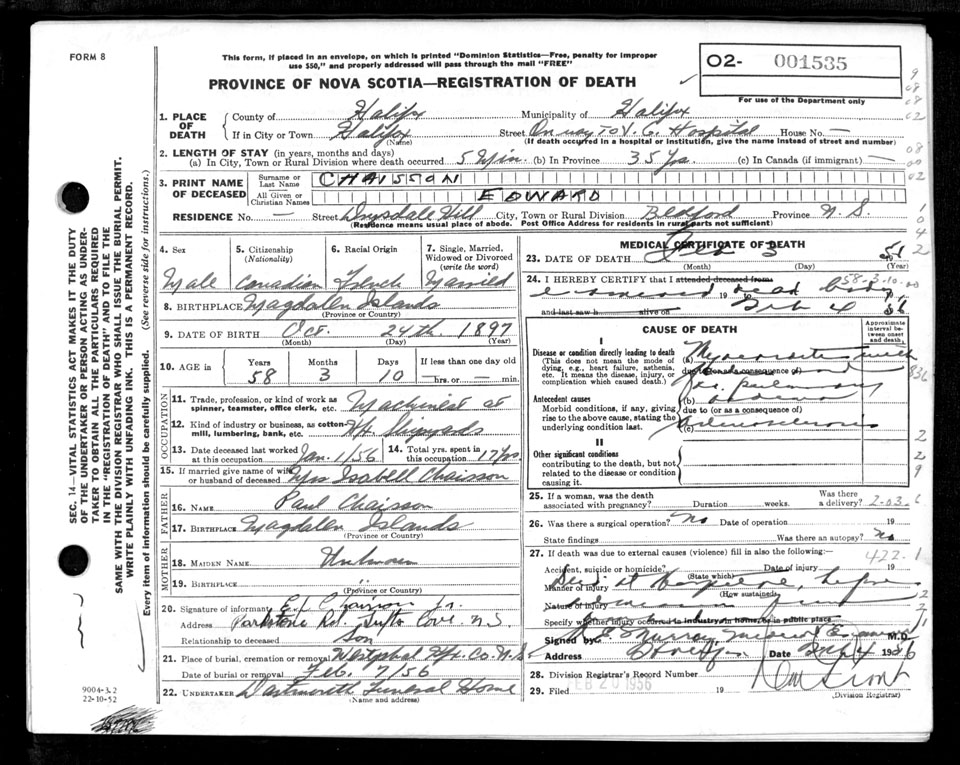 FORM 8
This form, if placed in an envelope, on which is printed "Dominion Statistics—Free, penalty for improper
use $50," and properly addressed will pass through the mail "FREE"
PROVINCE OF NOVA SCOTIA—REGISTRATION OF DEATH
02- 001535
For use of the Department only
1. PLACE OF DEATH
County of Halifax Municipality of Halifax
If in City or Town Halifax Street On way to V. G. Hospital House No. —
(Name) (If death occurred in a hospital or institution, give the name instead of street and number)
2. LENGTH OF STAY (in years, months and days)
(a) In City, Town or Rural Division where death occurred 5 Min. (b) In Province 35 Yrs. (c) In Canada (if immigrant) —
3. PRINT NAME OF DECEASED
Surname or Last Name CHAISSON
All Given or Christian Names EDWARD
RESIDENCE No. — Street Drysdale Hill City, Town or Rural Division Bedford Province N. S.
(Residence means usual place of abode. Post Office Address for residents in rural parts not sufficient)
4. Sex Male
5. Citizenship (Nationality) Canadian
6. Racial Origin French
7. Single, Married, Widowed or Divorced (write the word) Married
8. BIRTHPLACE Magdalen Islands
(Province or Country)
9. DATE OF BIRTH Oct. 24th 1897
(Month) (Day) (Year)
10. AGE in Years 58 Months 3 Days 10 If less than one day old —hrs. or — min.
OCCUPATION
11. Trade, profession or kind of work as spinner, teamster, office clerk, etc. Machinist at
12. Kind of industry or business, as cotton-mill, lumbering, bank, etc. Hfx Shipyards
13. Date deceased last worked at this occupation Jan. 1/56
14. Total yrs. spent in this occupation 17 yrs
15. If married give name of wife or husband of deceased Mrs Isabell Chaisson
FATHER
16. NAME Paul Chaisson
17. BIRTHPLACE Magdalen Islands
(Province or Country)
MOTHER
18. MAIDEN NAME Unknown
19. BIRTHPLACE "
(Province or Country)
20. Signature of informant E. L. Chaisson Jr.
Address Parkstone Rd. Tufts Cove N.S.
Relationship to deceased Son
21. Place of burial, cremation or removal Westphal Hfx. Co. N.S.
Date of burial or removal Feb. 7/56
22. UNDERTAKER Dartmouth Funeral Home
(Name and address)
MEDICAL CERTIFICATE OF DEATH
23. DATE OF DEATH Feb 3 56
(Month) (Day) (Year)
24. I HEREBY CERTIFY that I attended deceased from 58-3-10-00
examined 19 dead body
and last saw h alive on Feb 4 56
CAUSE OF DEATH
Approximate interval between onset and death
I
Disease or condition directly leading to death
(This does not mean the mode of dying, e.g., heart failure, asthenia, etc. It means the disease, injury, or complication which caused death.)
(a) Myocarditis
due to (or as a consequence of)
(b) pulmonary oedema
Antecedent causes
Morbid conditions, if any, giving rise to the above cause, stating the underlying condition last.
due to (or as a consequence of)
(c) Arteriosclerosis
II
Other significant conditions
contributing to the death, but not related to the disease or condition causing it.
25. If a woman, was the death associated with pregnancy? Duration weeks. Was there a delivery?
2-03.6
26. Was there a surgical operation? No Date of operation 19
State findings Was there an autopsy? No
27. If death was due to external causes (violence) fill in also the following:—
422.1
Accident, suicide or homicide? Date of injury 19
(State which)
Manner of injury
Died at Hospital, before
(How sustained)
Nature of injury
Specify whether injury occurred in industry, in home, or in public place.
Signed by Murray, Medical Examiner M.D.
Address Halifax Date Feb 4 1956
28. Division Registrar's Record Number
29. Filed FEB 20 1956 19
(Division Registrar)
SEC. 14—VITAL STATISTICS ACT MAKES IT THE DUTY
OF THE UNDERTAKER OR PERSON ACTING AS UNDER-
TAKER TO OBTAIN ALL THE PARTICULARS REQUIRED
IN THE "REGISTRATION OF DEATH" AND TO FILE THE
SAME WITH THE DIVISION REGISTRAR WHO SHALL ISSUE THE BURIAL PERMIT.
WRITE PLAINLY WITH UNFADING INK. THIS IS A PERMANENT RECORD.
Every item of information should be carefully supplied. (See reverse side for instructions.)
9004-3.2
22-10-52